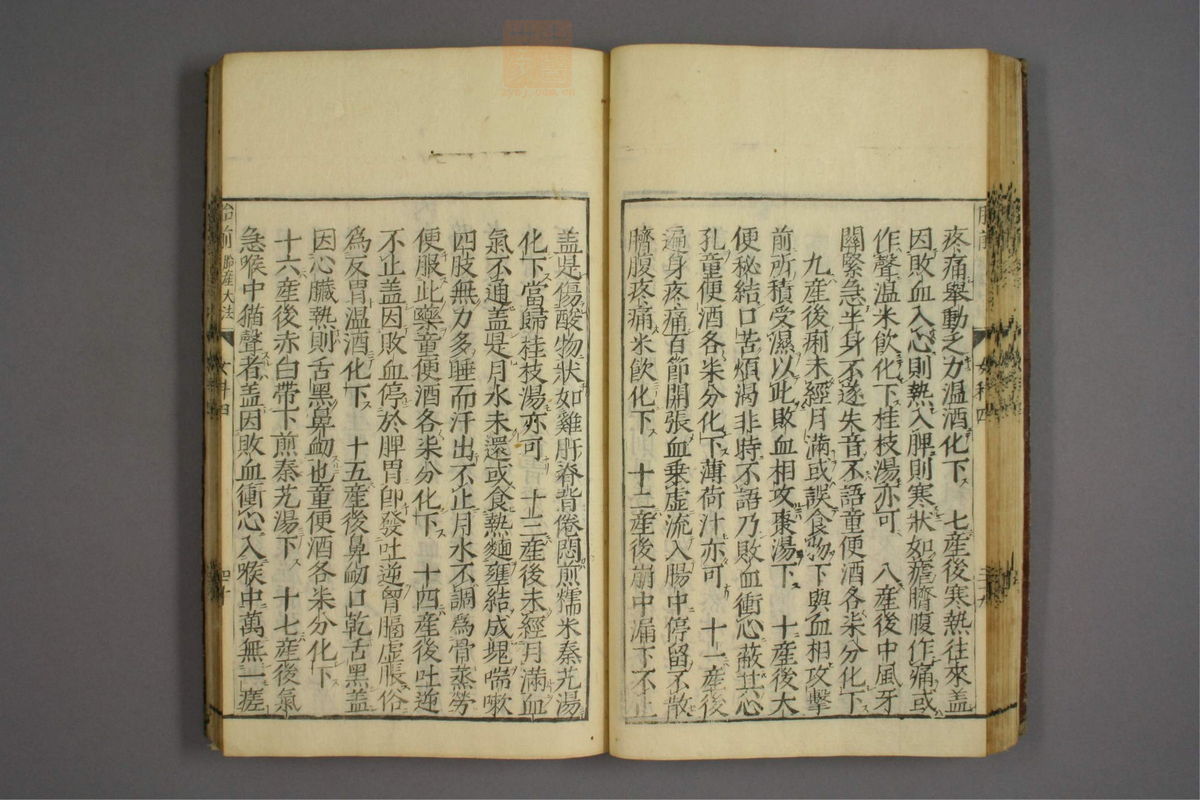 疼痛舉動乏力溫酒化下　七産後寒熱往來蓋
因敗血入心則熱入脾則寒狀如瘧臍腹作痛或
作聲温米飲化下桂枝湯亦可　八産後中風牙
關緊急半身不遂失音不語童便酒各柒分化下
九産後痢未經月滿或誤食物下與血相攻擊
前所積受濕以此敗血相攻棗湯下　十産後大
便秘結口苦煩渴非時不語乃敗血衝心蔽其心
孔童便酒各柒分化下薄荷汁亦可　十一産後
遍身疼痛百節開張血乗虚流入腸中停留不散
臍腹疼痛米飲化下　十二産後崩中漏下不止
蓋是傷酸物狀如雞肝脊背倦悶煎糯米秦艽湯
化下當歸桂枝湯亦可　十三産後未經月滿血
氣不通蓋是月水未還或食熱麵壅結成塊喘嗽
四肢無力多睡而汗出不止月水不調爲骨蒸勞
便服此藥童便酒各柒分化下　十四産後吐逆
不止蓋因敗血停於脾胃卽發吐逆胷膈虚脹俗
爲反胃温酒化下　十五産後鼻衂口乾舌黑蓋
因心臟熱則舌黑鼻衂也童便酒各柒分化下
十六産後赤白帶下煎秦艽湯下　十七産後氣
急喉中猫聲者蓋因敗血衝心入喉中萬無一瘥
胎前　臨産大法　女科四　四十